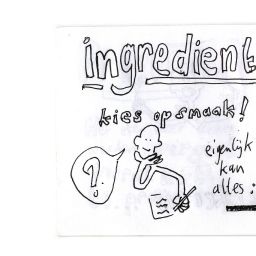 ingredient
kies op smaak!
?
eigenlijk
kan
alles: